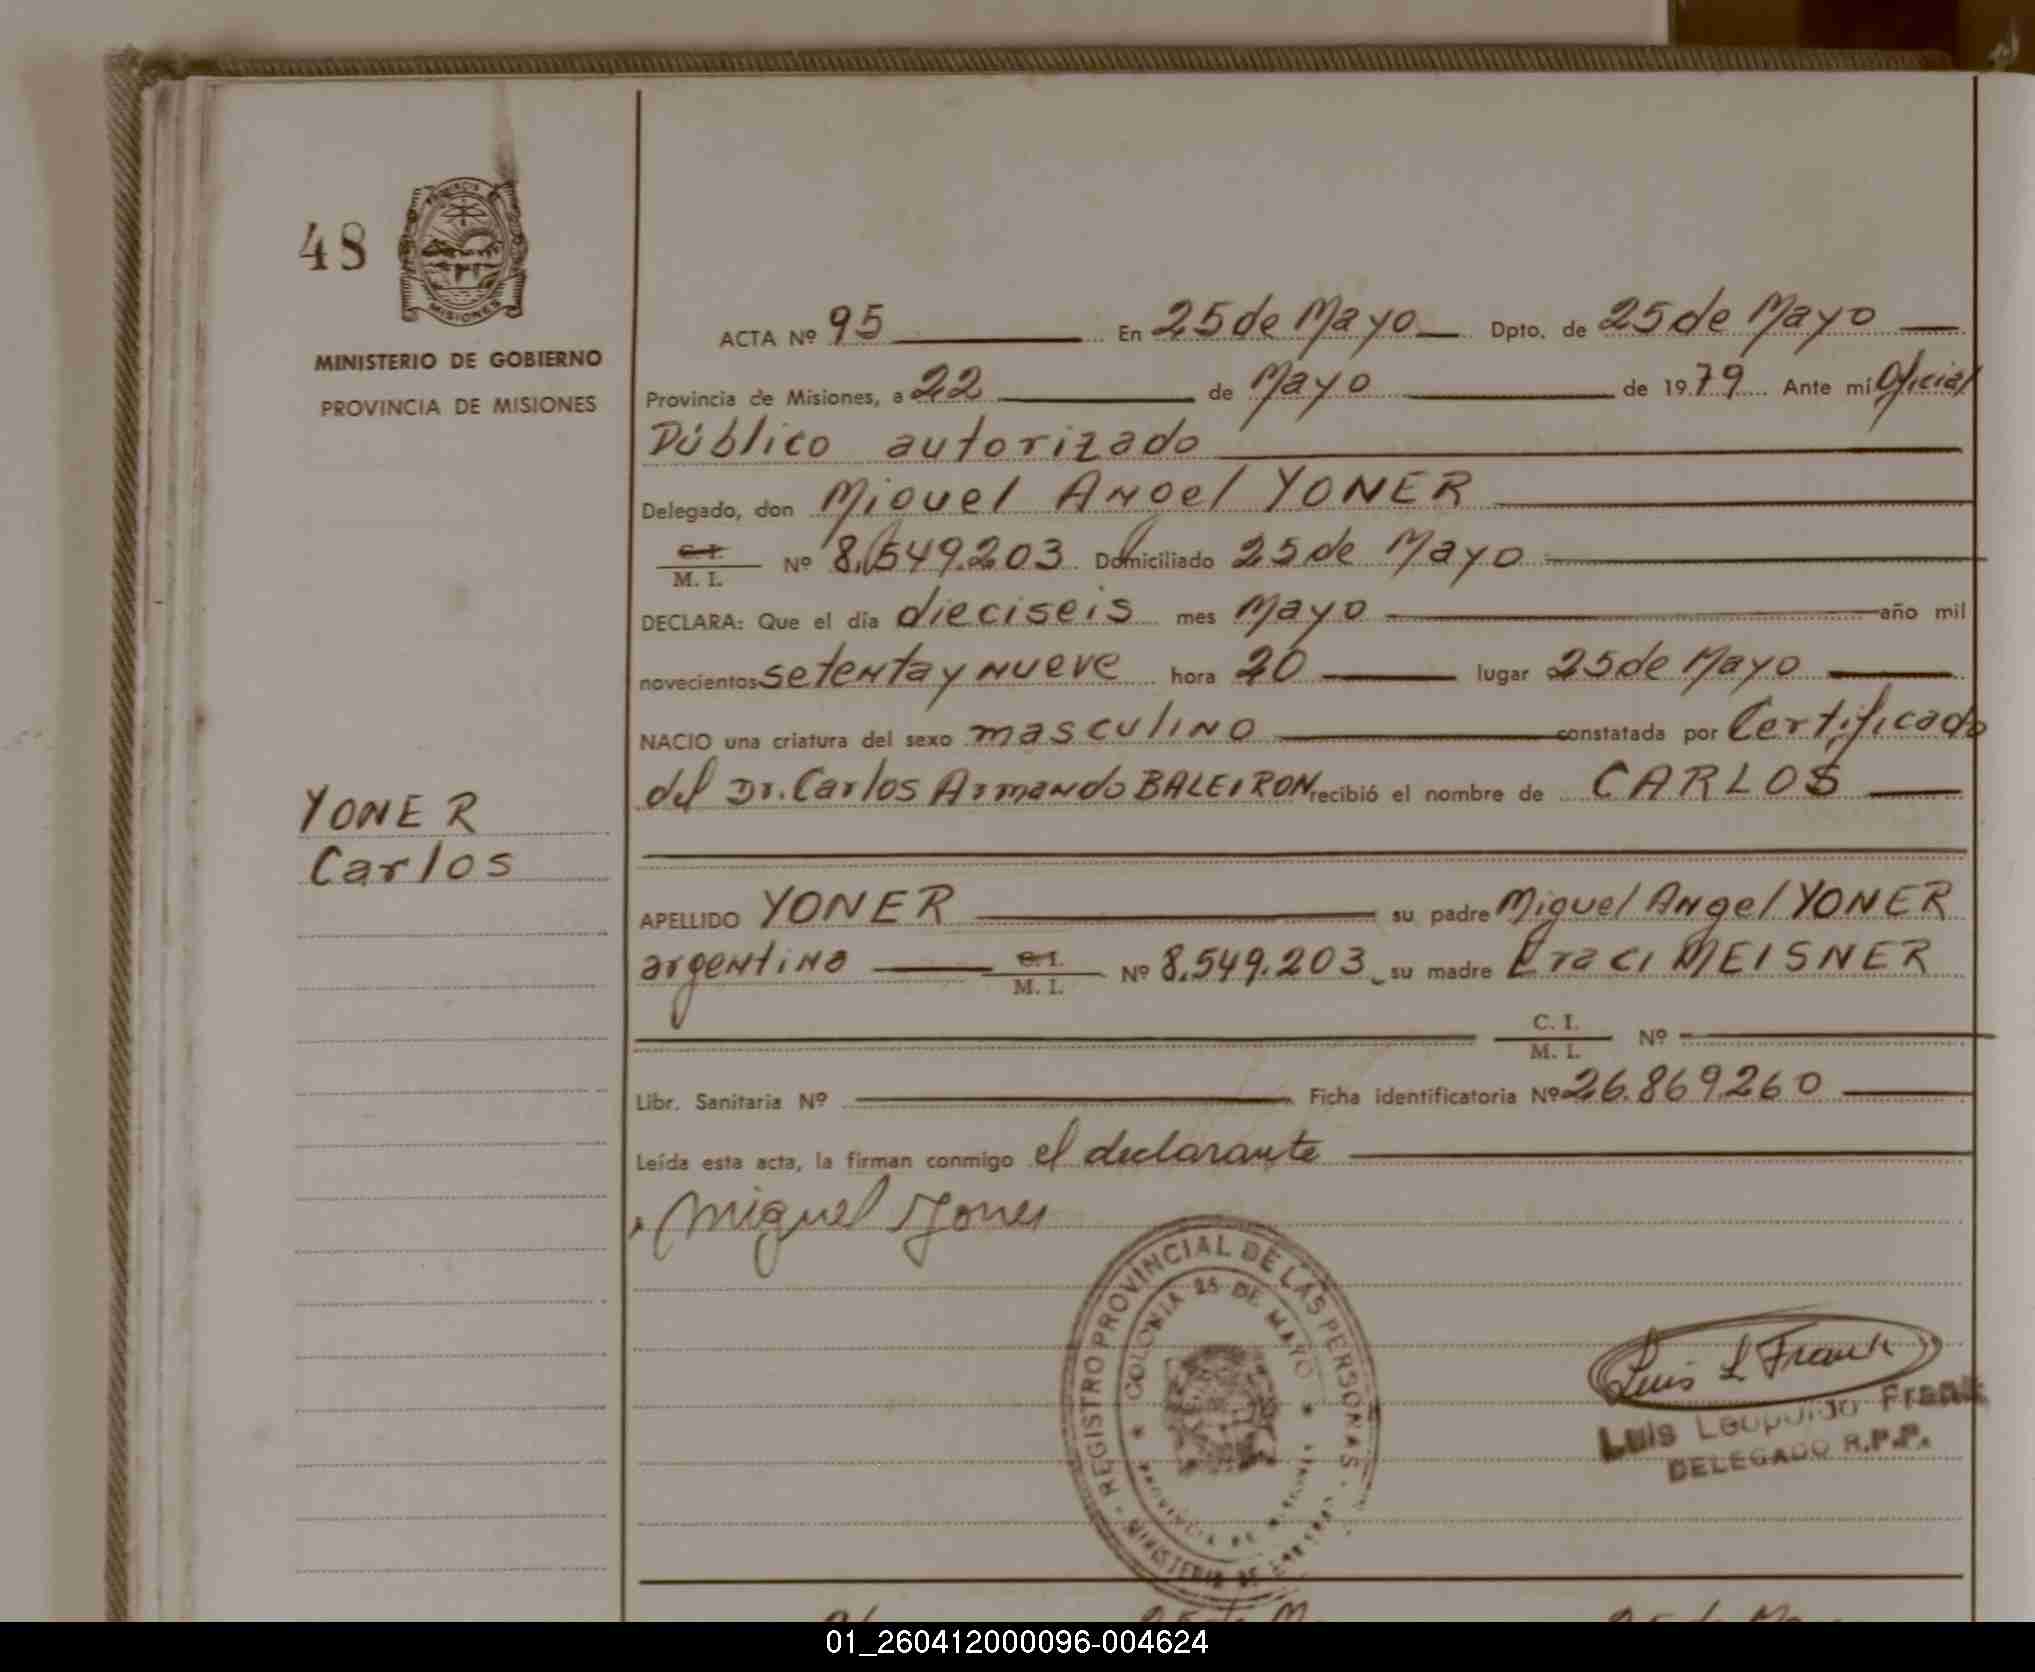 48
PROVINCIA
MISIONES
MINISTERIO DE GOBIERNO
PROVINCIA DE MISIONES
YONER
Carlos
ACTA Nº 95 En 25 de Mayo Dpto. de 25 de Mayo
Provincia de Misiones, a 22 de Mayo de 1979 Ante mí Oficial
Público autorizado
Delegado, don Miguel Angel YONER
C.I. M. I. Nº 8.549.203 Domiciliado 25 de Mayo
DECLARA: Que el día dieciseis mes Mayo año mil
novecientos setenta y nueve hora 20 lugar 25 de Mayo
NACIO una criatura del sexo masculino constatada por Certificado
del Dr. Carlos Armando BALEIRON recibió el nombre de CARLOS
APELLIDO YONER su padre Miguel Angel YONER
argentino C.I. M. I. Nº 8.549.203 su madre Eraci MEISNER
C. I. M. I. Nº
Libr. Sanitaria Nº Ficha identificatoria Nº 26.869.260
Leída esta acta, la firman conmigo el declarante
Miguel Yoner
REGISTRO PROVINCIAL DE LAS PERSONAS - MINISTERIO DE GOBIERNO -
COLONIA 25 DE MAYO
PROVINCIA DE MISIONES
Luis L Frank
Luis Leopoldo Frank
DELEGADO R.P.P.
01_260412000096-004624